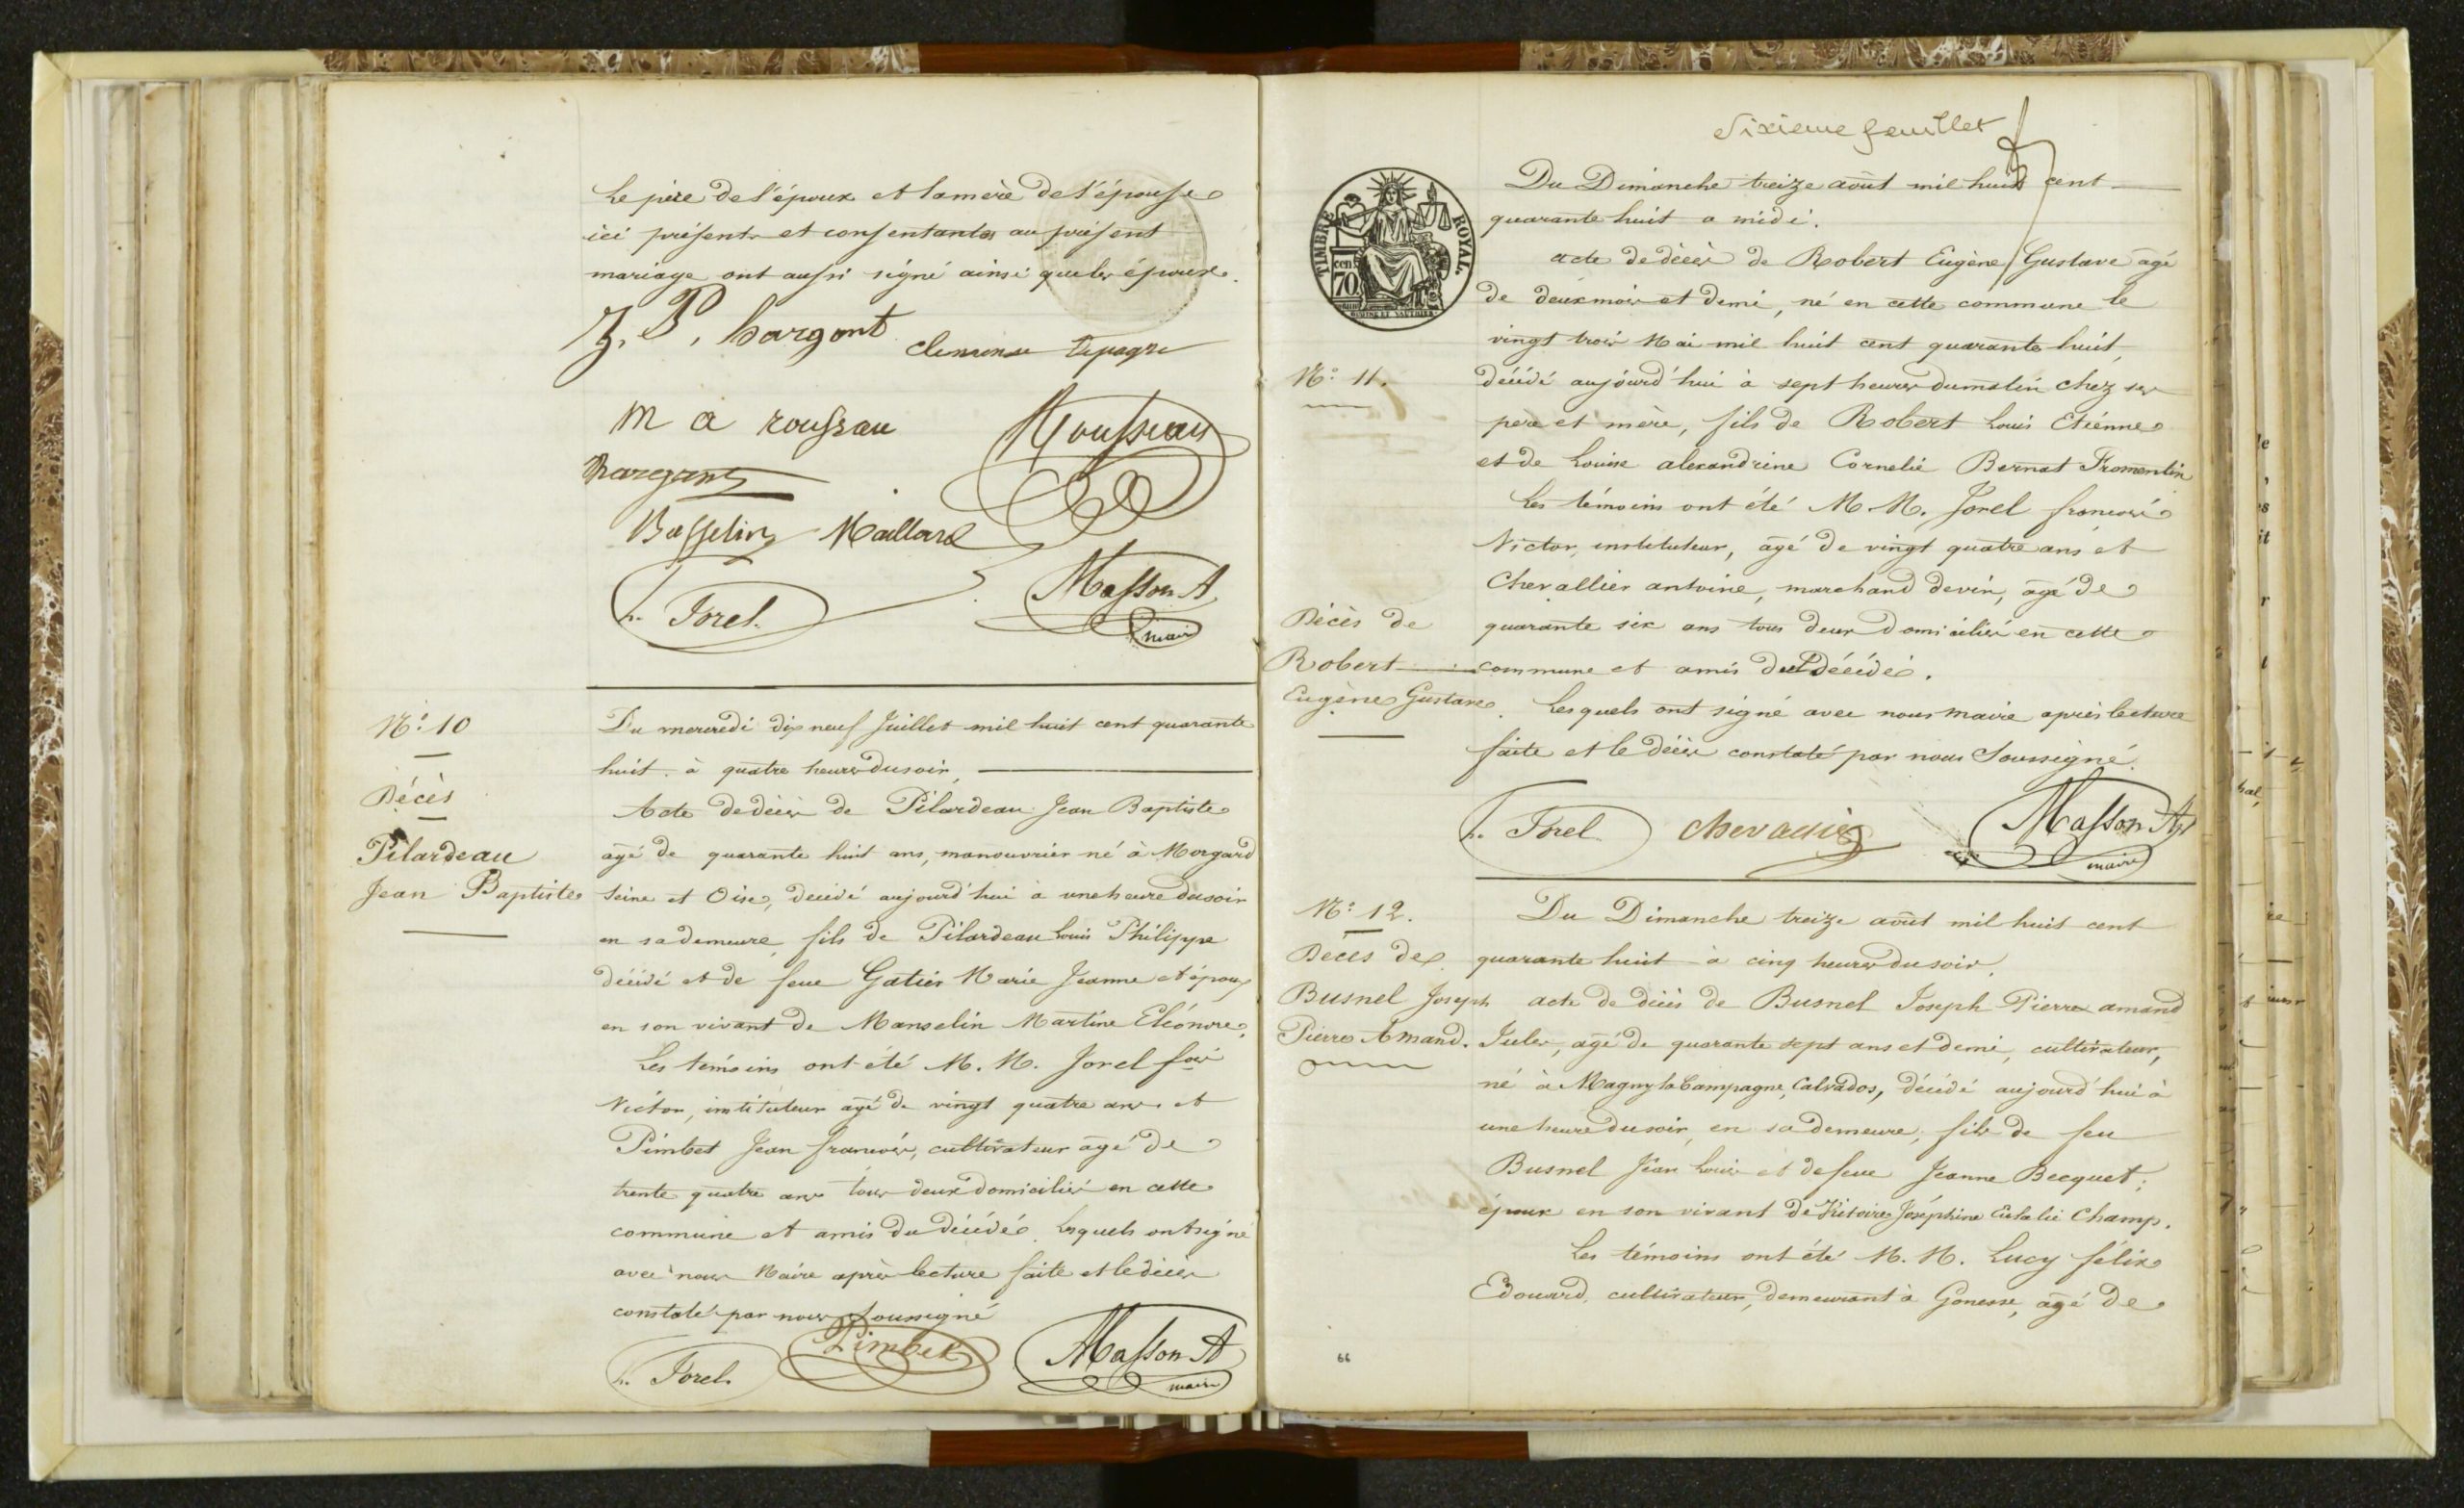 Le père de l'époux et la mère de l'épouse
ici présents et consentants au présent
mariage ont aussi signé ainsi que les époux.
J. P. Largont
Clemence Lepagre
M a rousseau
Rousseau
Basselin
Maillard
h. Jorel.
Masson A
maire
N°: 10
Décès
Pilardeau
Jean Baptiste
Du mercredi dix neuf Juillet mil huit cent quarante
huit à quatre heures du soir,
Acte de décès de Pilardeau Jean Baptiste
agé de quarante huit ans, manouvrier né à Morgard
Seine et Oise, décédé aujourd'hui à une heure du soir
en sa demeure, fils de Pilardeau Louis Philippe
décédé et de feue Gatier Marie Jeanne et époux
en son vivant de Manselin Martine Eléonore,
Les témoins ont été M. M. Jorel fois
Victor, instituteur agé de vingt quatre ans et
Pimbet Jean françois, cultivateur agé de
trente quatre ans tous deux domiciliés en cette
commune et amis du décédé. Lesquels ont signé
avec nous Maire après lecture faite et le décès
constaté par nous soussigné
h. Jorel.
Pimbet
Masson A
maire
Sixieme feuillet
TIMBRE ROYAL.
70 cent
Du Dimanche treize août mil huit cent
quarante huit a midi.
acte de décès de Robert Eugène Gustave agé
de deux mois et demi, né en cette commune le
vingt trois Mai mil huit cent quarante huit,
N°: 11.
décédé aujourd'hui à sept heures du matin chez ses
père et mère, fils de Robert Louis Etienne
et de Louise alexandrine Cornelie Bernat Fromentin
Les témoins ont été M. M. Jorel françois
Victor, instituteur, agé de vingt quatre ans et
Chevallier antoine, marchand de vin, agé de
Décès de
Robert
Eugène Gustave.
quarante six ans tous deux domiciliés en cette
commune et amis du décédé.
Lesquels ont signé avec nous maire après lecture
faite et le décès constaté par nous Soussigné.
h. Jorel
chevallier
Masson A
maire
N°: 12.
Décès de
Busnel Joseph
Pierre Amand.
Du Dimanche treize août mil huit cent
quarante huit à cinq heures du soir.
acte de décès de Busnel Joseph Pierre amand
Jules, agé de quarante sept ans et demi, cultivateur,
né à Magny la Campagne, Calvados, décédé aujourd'hui à
une heure du soir, en sa demeure, fils de feu
Busnel Jean Louis et de feue Jeanne Becquet;
époux en son vivant de Victoire Joséphine Eulalie Champ.
Les témoins ont été M. M. Lucy félix
Edouard, cultivateur, demeurant à Gonesse, agé de
66